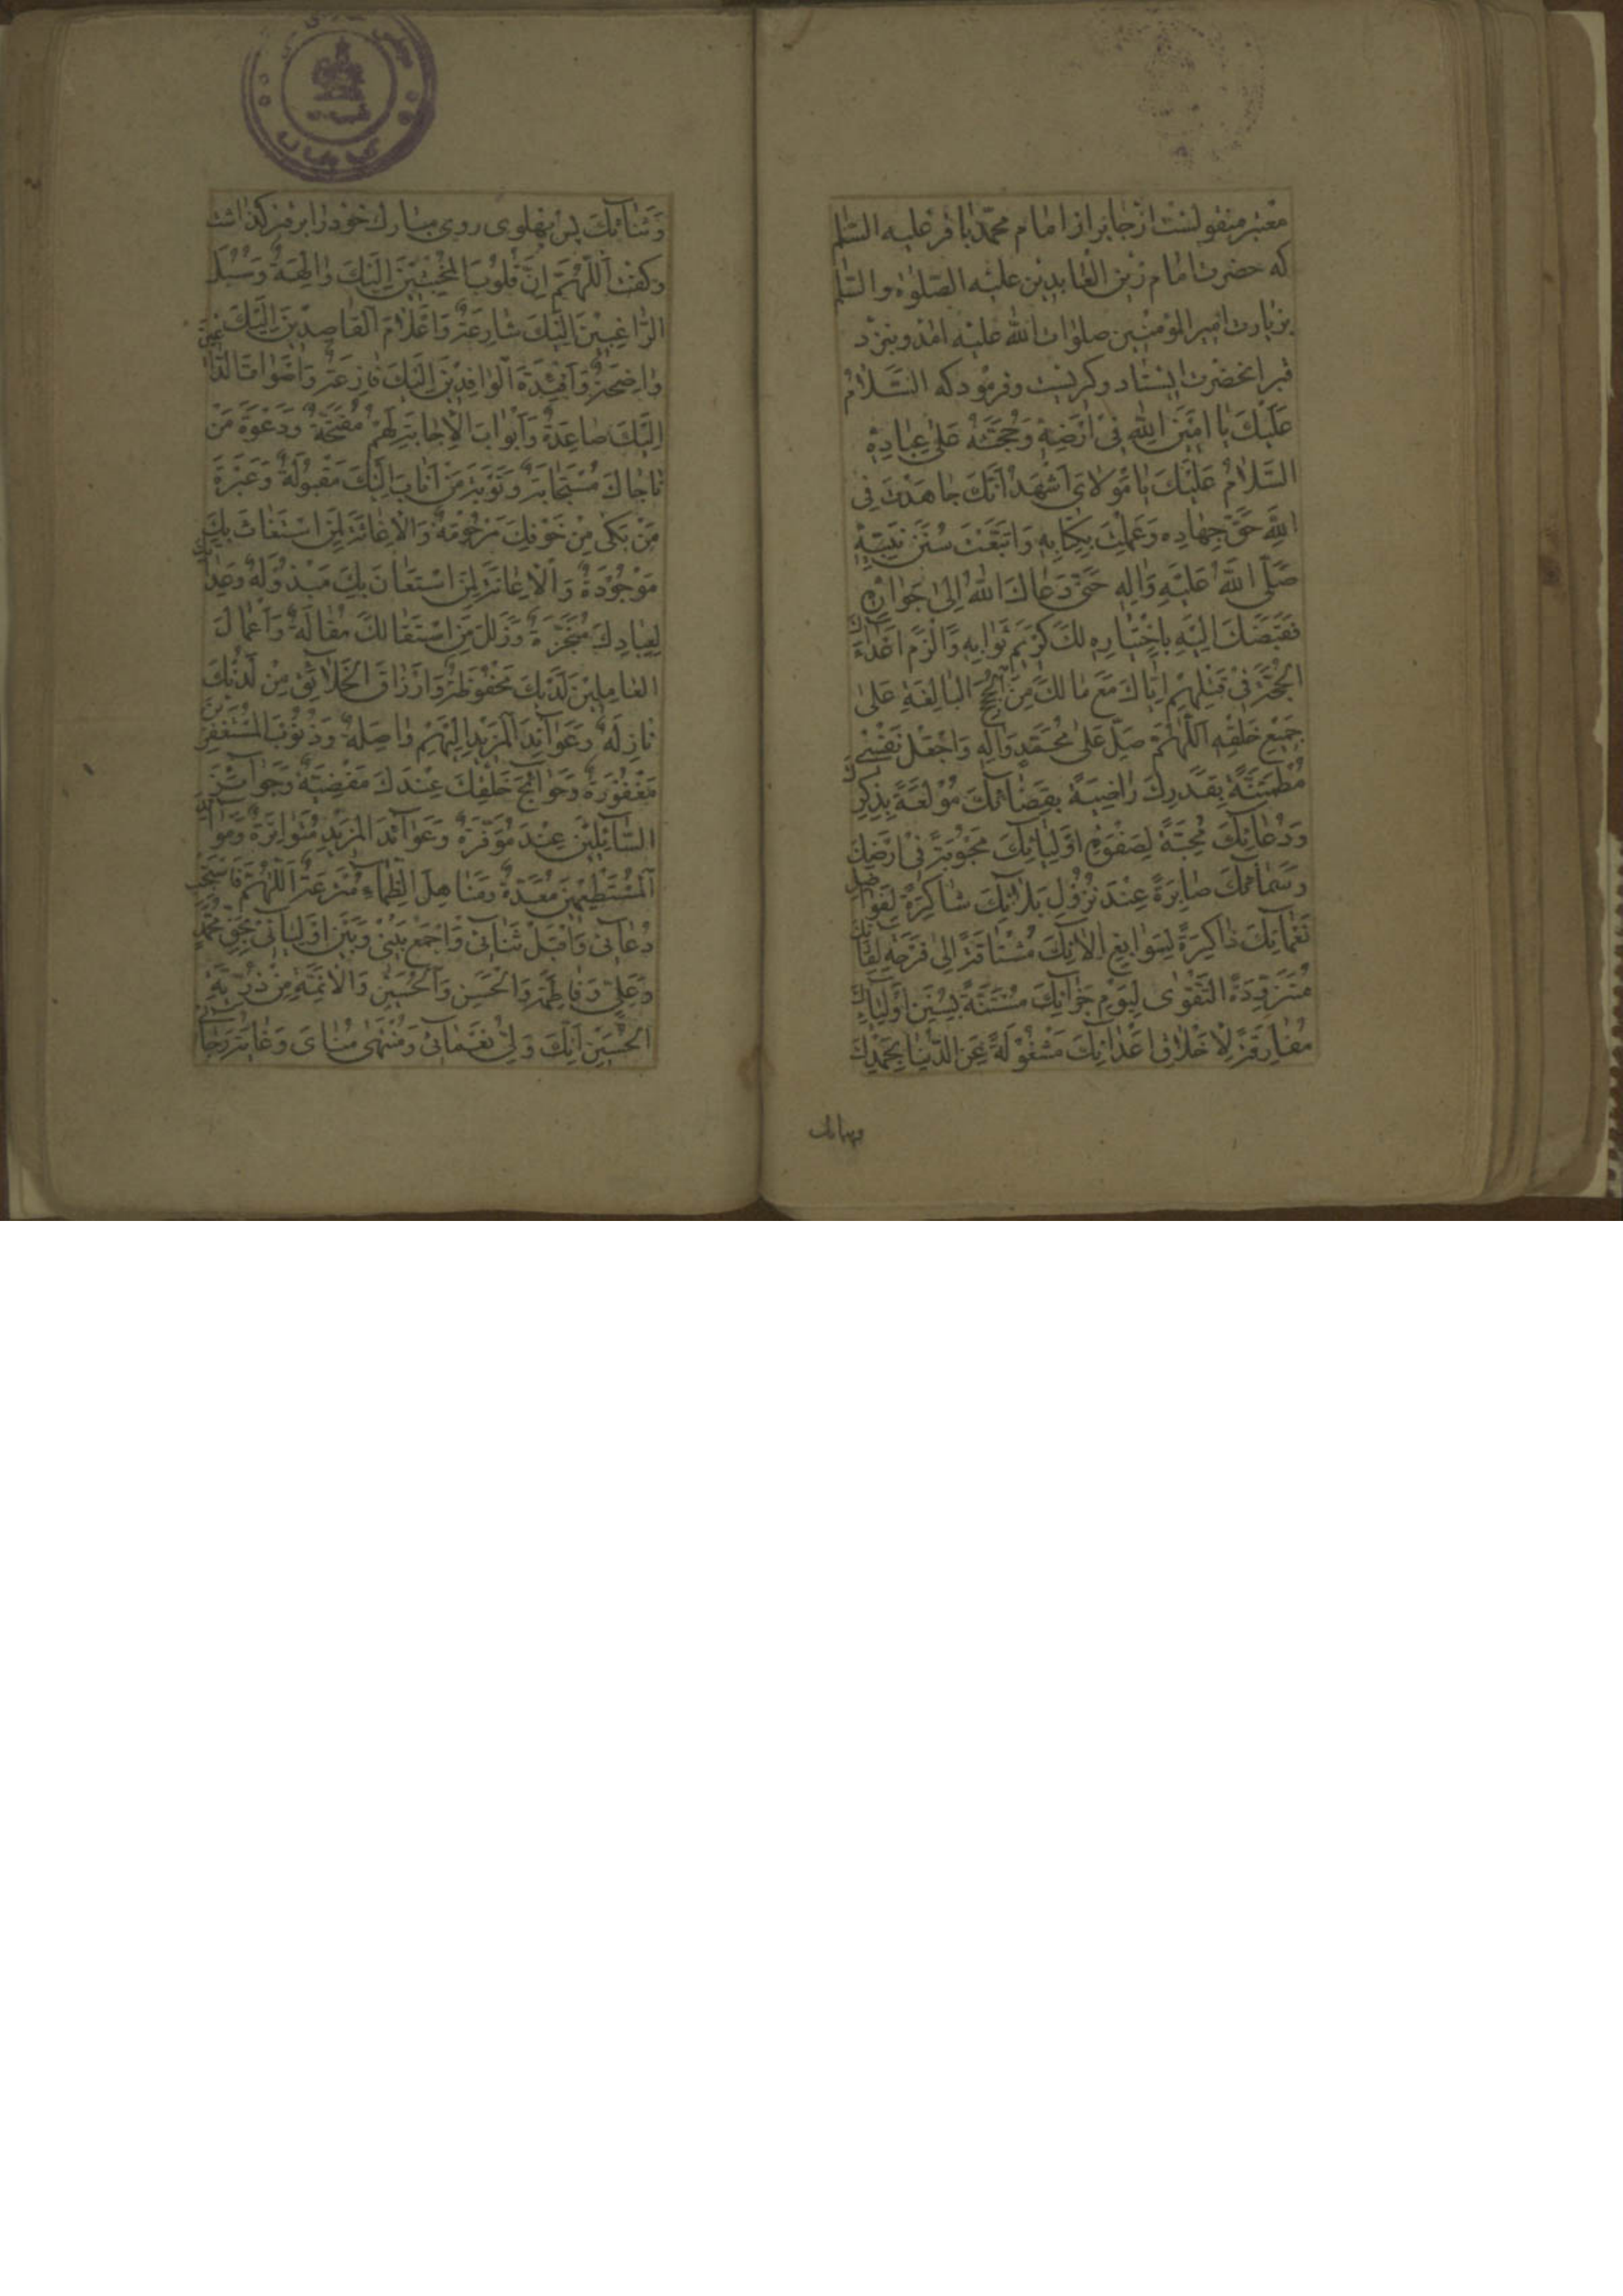 معتبر منقولست از جابر از امام محمد باقر علیه السلم
که حضرت امام زین العابدین علیه الصلوة والسلم
بزیارت امیر المؤمنین صلوات الله علیه امد و بنزد
قبر انحضرت ایستاد و کریست و فرمود که اَلسَّلامُ
عَلَیْكَ یا اَمینَ اللهِ فی اَرْضِهِ وَحُجَّتَهُ عَلی عِبادِهِ
اَلسَّلامُ عَلَیْكَ یا مَوْلایَ اَشْهَدُ اَنَّكَ جاهَدْتَ فِی
اللهِ حَقَّ جِهادِه وَعَمِلْتَ بِکِتابِهِ وَاتَّبَعْتَ سُنَنَ نَبِیِّهِ
صَلَّی اللهُ عَلَیْهِ وَالِهِ حَتّی دَعاكَ اللهُ اِلی جَوارِهِ
فَقَبَضَكَ اِلَیْهِ بِاخْتِیارِهِ لَكَ کَریمَ ثَوابِهِ وَاَلْزَمَ اَعْداءَكَ
الْحُجَّةَ فی قَتْلِهِمْ اِیّاكَ مَعَ مالَكَ مِنَ الْحُجَجِ البالِغَةِ عَلی
جَمیعِ خَلْقِهِ اَللّهُمَّ صَلِّ عَلی مُحَمَّدٍ وَالِهِ وَاجْعَلْ نَفْسی
مُطْمَئِنَّةً بِقَدَرِكَ راضِیَةً بِقَضائِكَ مُوْلَعَةً بِذِکْرِكَ
وَدُعائِكَ مُحِبَّةً لِصَفْوَةِ اَوْلِیائِكَ مَحْبُوبَةً فی اَرْضِكَ
وَسَمائِكَ صابِرَةً عِنْدَ نُزُولِ بَلائِكَ شاکِرَةً لِفَواضِلِ
نَعْمائِكَ ذاکِرَةً لِسَوابِغِ الائِكَ مُشْتاقَةً اِلی فَرْحَةِ لِقائِكَ
مُتَزَوِّدَةً التَّقْوی لِیَوْمِ جَزائِكَ مُسْتَنَّةً بِسُنَنِ اَوْلِیائِكَ
مُفارِقَةً لِاَخْلاقِ اَعْدائِكَ مَشْغُولَةً عَنِ الدُّنْیا بِحَمْدِكَ
وَثَنائِكَ پس پهلوی روی مبارك خود را بر قبر کذاشت
و کفت اَللّهُمَّ اِنَّ قُلُوبَ الْمُخْبِتینَ اِلَیْكَ والِهَةٌ وَسُبُلَ
الرّاغِبینَ اِلَیْكَ شارِعَةٌ وَاَعْلامَ الْقاصِدینَ اِلَیْكَ
واضِحَةٌ وَاَفْئِدَةَ الْوافِدینَ اِلَیْكَ فازِعَةٌ وَاَصْواتَ الدّاعینَ
اِلَیْكَ صاعِدَةٌ وَاَبْوابَ الْاِجابَةِ لَهُمْ مُفَتَّحَةٌ وَدَعْوَةَ مَنْ
ناجاكَ مُسْتَجابَةٌ وَتَوْبَةَ مَنْ اَنابَ اِلَیْكَ مَقْبُولَةٌ وَعَبْرَةَ
مَنْ بَکی مِنْ خَوْفِكَ مَرْحُومَةٌ وَالْاِغاثَةَ لِمَنِ اسْتَغاثَ بِكَ
مَوْجُودَةٌ وَالْاِعانَةَ لِمَنِ اسْتَعانَ بِكَ مَبْذُولَةٌ وَعِداتِكَ
لِعِبادِكَ مُنْجَزَةٌ وَزَلَلَ مَنِ اسْتَقالَكَ مُقالَةٌ وَاَعْمالَ
الْعامِلینَ لَدَیْكَ مَحْفُوظَةٌ وَاَرْزاقَ الْخَلائِقِ مِنْ لَدُنْكَ
نازِلَةٌ وَعَوائِدَ الْمَزیدِ اِلَیْهِمْ واصِلَةٌ وَذُنُوبَ الْمُسْتَغْفِرینَ
مَغْفُورَةٌ وَحَوائِجَ خَلْقِكَ عِنْدَكَ مَقْضِیَّةٌ وَجَوائِزَ
السّائِلینَ عِنْدَكَ مُوَفَّرَةٌ وَعَوائِدَ الْمَزیدِ مُتَواتِرَةٌ وَمَوائِدَ
الْمُسْتَطْعِمینَ مُعَدَّةٌ وَمَناهِلَ الظِّماءِ مُتْرَعَةٌ اَللّهُمَّ فَاسْتَجِبْ
دُعائی وَاقْبَلْ ثَنائی وَاجْمَعْ بَیْنی وَبَیْنَ اَوْلِیائی بِحَقِّ مُحَمَّدٍ
وَعَلِیٍّ وَفاطِمَةَ وَالْحَسَنِ وَالْحُسَیْنِ وَالْاَئِمَّةِ مِنْ ذُرِّیَّةِ
الْحُسَیْنِ اِنَّكَ وَلِیُّ نَعْمائی وَمُنْتَهی مُنایَ وَغایَةُ رَجائی